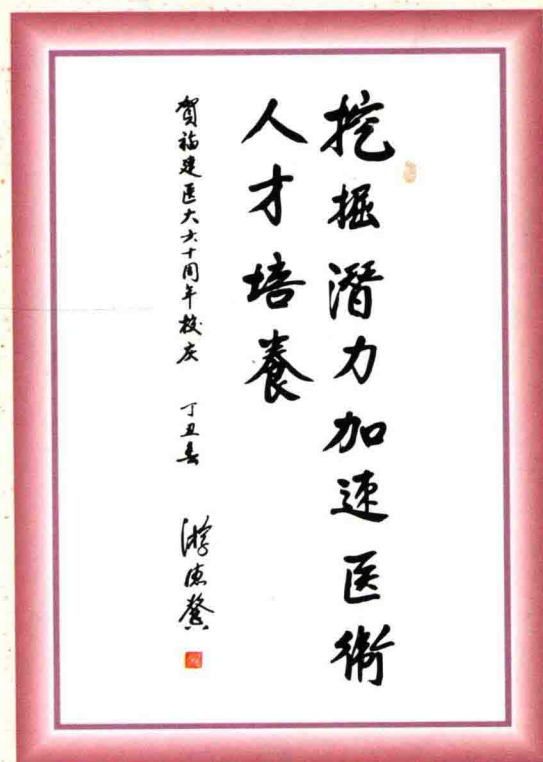 挖掘潛力加速医衛
人才培養
賀福建医大六十周年校庆 丁丑春 游德馨